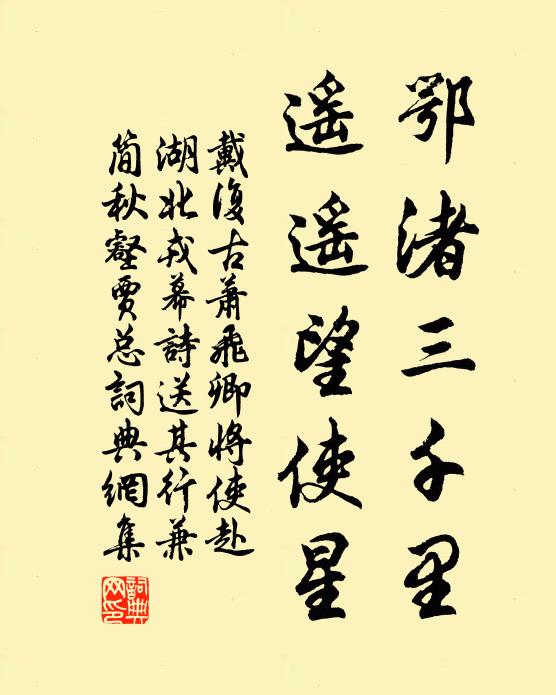 鄂渚三千里
遥遥望使星
戴復古蕭飛卿將使赴
湖北戎幕詩送其行兼
簡秋壑賈总詞典網集
詞典网印